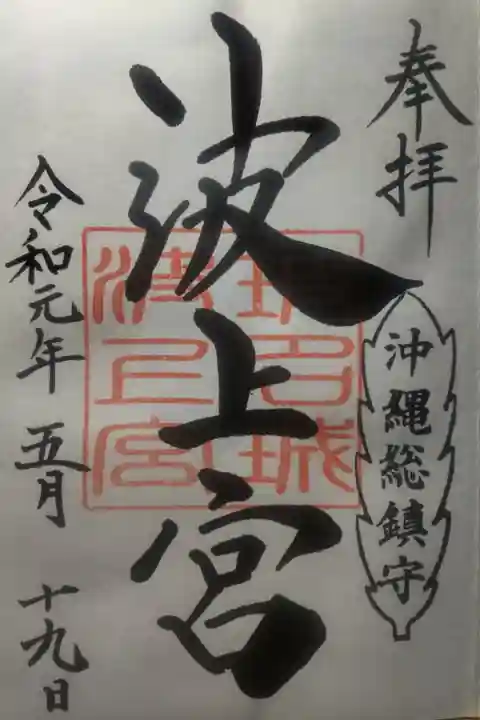 奉拝
沖縄総鎮守
波上宮
令和元年 五月 十九日